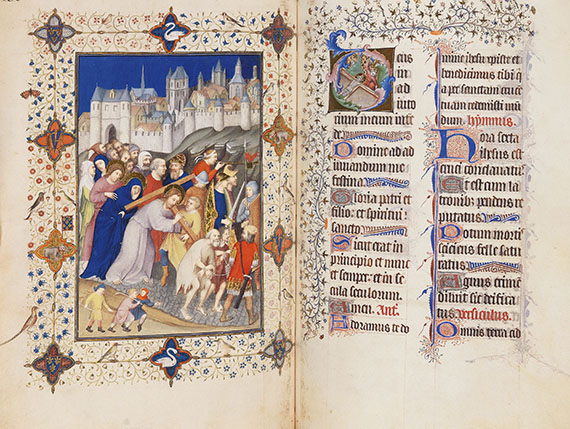 Deus
in ad
iuto
rium meum inten
de
Domine ad ad
iuuandum me
festina
Gloria patri et
filio et spiritui
sancto
Sicut erat in
principio et nunc
et semper et in se
cula seculorum.
Amen. Ant.
Adoramus te do
mine ihesu xpiste et
benedicimus tibi q
a per sanctam cruce
tuam redemisti mu
dum. hympnus.
Hora sexta
ihesus est
cruci conclauatus
Et est cum la
tronibus pendens re
putatus
Potum mortis
sciciens felle satu
ratus
Agnus crimen
diluit sic
tus versiculus
Omnis terra ad